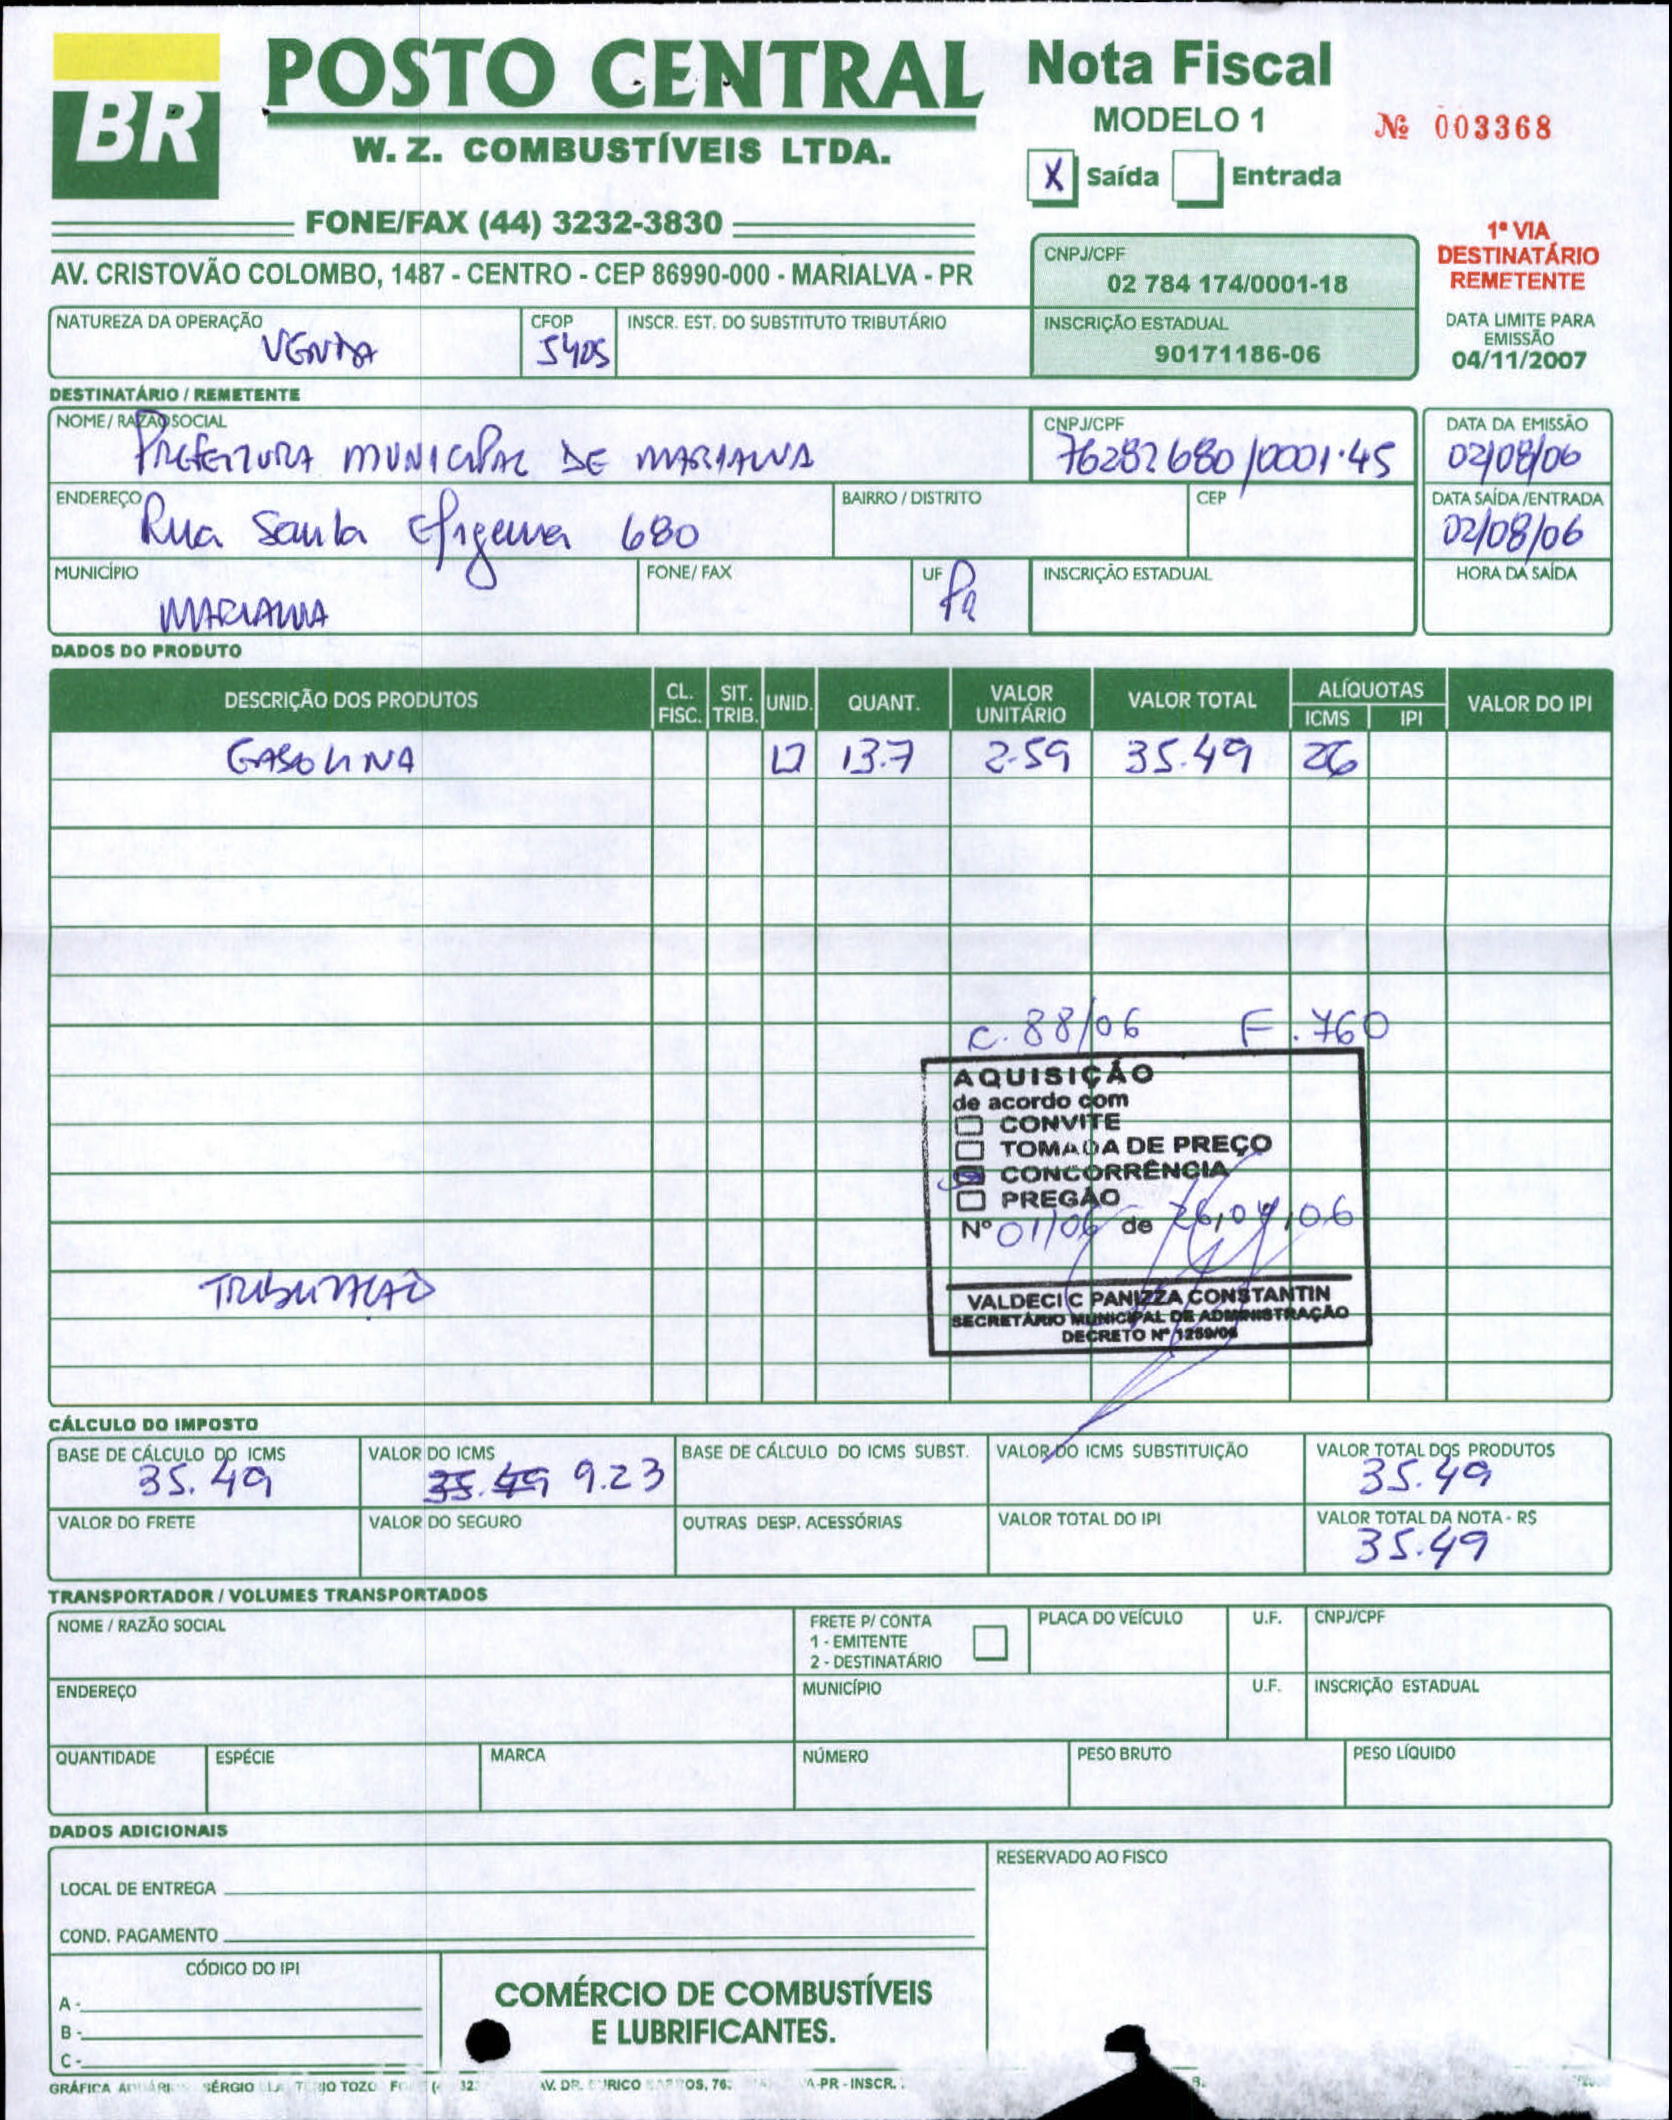 BR
POSTO CENTRAL
W. Z. COMBUSTÍVEIS LTDA.
FONE/FAX (44) 3232-3830
AV. CRISTOVÃO COLOMBO, 1487 - CENTRO - CEP 86990-000 - MARIALVA - PR
Nota Fiscal
MODELO 1
Nº 003368
X Saída Entrada
CNPJ/CPF
02 784 174/0001-18
INSCRIÇÃO ESTADUAL
90171186-06
1ª VIA
DESTINATÁRIO
REMETENTE
DATA LIMITE PARA
EMISSÃO
04/11/2007
NATUREZA DA OPERAÇÃO CFOP INSCR. EST. DO SUBSTITUTO TRIBUTÁRIO
VENDA 5405
DESTINATÁRIO / REMETENTE
NOME / RAZÃO SOCIAL CNPJ/CPF DATA DA EMISSÃO
PREFEITURA MUNICIPAL DE MARIALVA 76282680/0001-45 02/08/06
ENDEREÇO BAIRRO / DISTRITO CEP DATA SAÍDA /ENTRADA
Rua Santa Efigenia 680 02/08/06
MUNICÍPIO FONE / FAX UF INSCRIÇÃO ESTADUAL HORA DA SAÍDA
MARIALVA Pr
DADOS DO PRODUTO
DESCRIÇÃO DOS PRODUTOS CL. FISC. SIT. TRIB. UNID. QUANT. VALOR UNITÁRIO VALOR TOTAL ALÍQUOTAS ICMS IPI VALOR DO IPI
GASOLINA 13.7 2.59 35.49 26
C. 88/06 F. 760
AQUISIÇÃO
de acordo com
CONVITE
TOMADA DE PREÇO
CONCORRÊNCIA
PREGÃO
Nº 01/06 de 26,04,06
TRIBUTAÇÃO
VALDECI C PANIZZA CONSTANTIN
SECRETÁRIO MUNICIPAL DE ADMINISTRAÇÃO
DECRETO Nº 1259/06
CÁLCULO DO IMPOSTO
BASE DE CÁLCULO DO ICMS VALOR DO ICMS BASE DE CÁLCULO DO ICMS SUBST. VALOR DO ICMS SUBSTITUIÇÃO VALOR TOTAL DOS PRODUTOS
35.49 35.49 9.23 35.49
VALOR DO FRETE VALOR DO SEGURO OUTRAS DESP. ACESSÓRIAS VALOR TOTAL DO IPI VALOR TOTAL DA NOTA - R$
35.49
TRANSPORTADOR / VOLUMES TRANSPORTADOS
NOME / RAZÃO SOCIAL FRETE P/ CONTA PLACA DO VEÍCULO U.F. CNPJ/CPF
1 - EMITENTE
2 - DESTINATÁRIO
ENDEREÇO MUNICÍPIO U.F. INSCRIÇÃO ESTADUAL
QUANTIDADE ESPÉCIE MARCA NÚMERO PESO BRUTO PESO LÍQUIDO
DADOS ADICIONAIS
LOCAL DE ENTREGA
COND. PAGAMENTO
RESERVADO AO FISCO
CÓDIGO DO IPI
A -
B -
C -
COMÉRCIO DE COMBUSTÍVEIS
E LUBRIFICANTES.
GRÁFICA SÉRGIO TOZO AV. DR. -PR - INSCR.